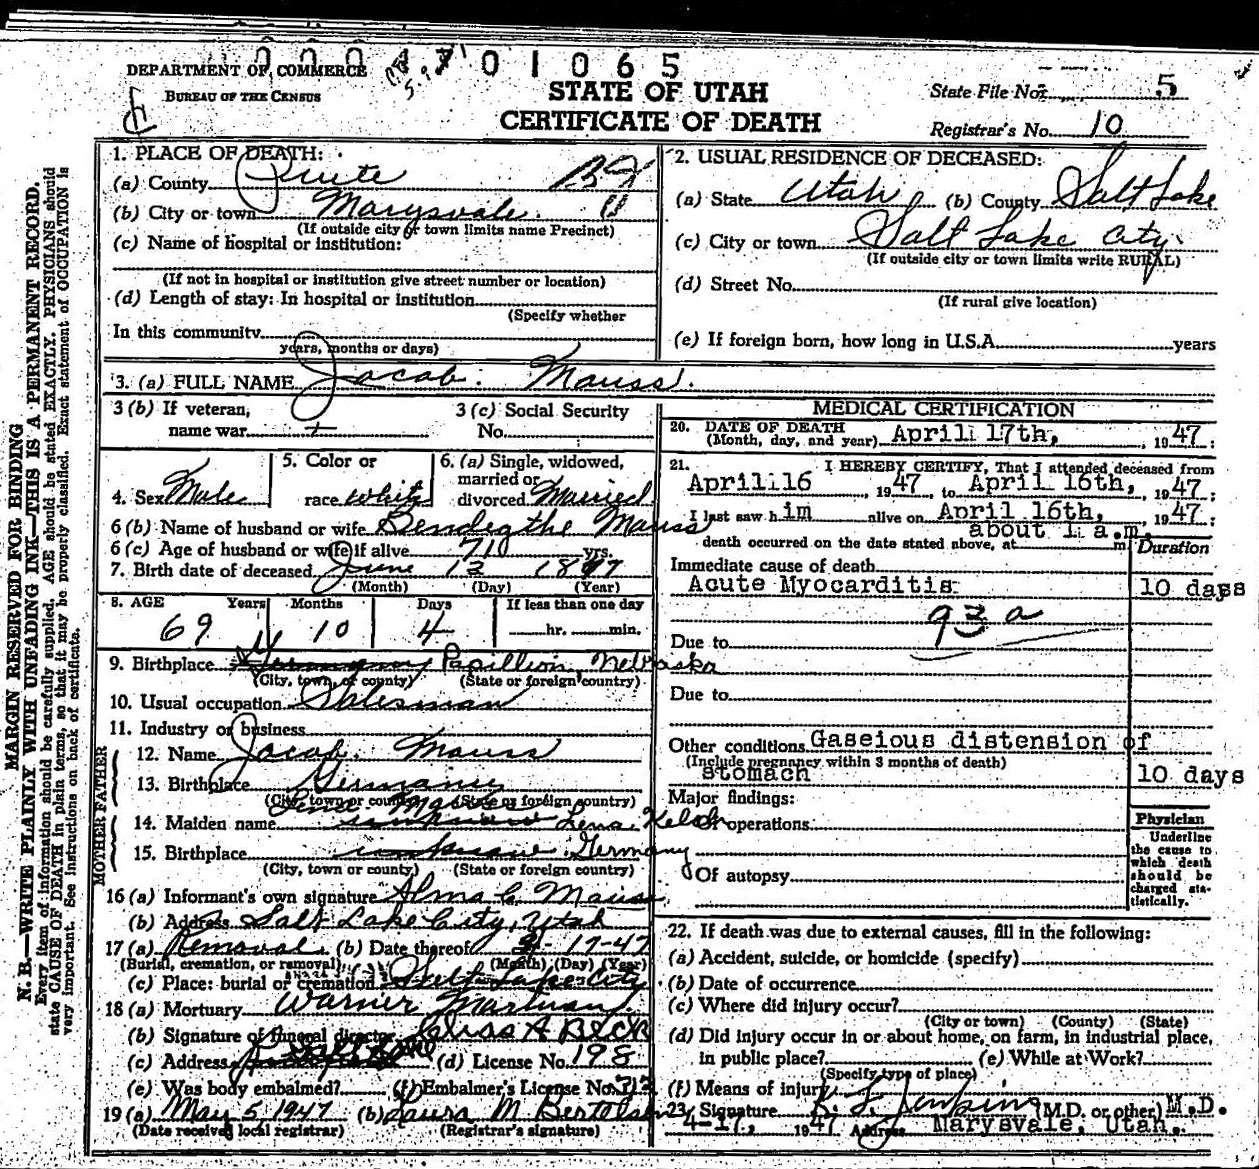 0 0 0 1 0 1 0 6 5
DEPARTMENT OF COMMERCE
BUREAU OF THE CENSUS
STATE OF UTAH
CERTIFICATE OF DEATH
State File No. 5
Registrar's No. 10
MARGIN RESERVED FOR BINDING
N. B.—WRITE PLAINLY WITH UNFADING INK—THIS IS A PERMANENT RECORD.
Every item of information should be carefully supplied. AGE should be stated EXACTLY. PHYSICIANS should
state CAUSE OF DEATH in plain terms, so that it may be properly classified. Exact statement of OCCUPATION is
very important. See instructions on back of certificate.
1. PLACE OF DEATH:
(a) County Piute
(b) City or town Marysvale.
(If outside city or town limits name Precinct)
(c) Name of hospital or institution:
(If not in hospital or institution give street number or location)
(d) Length of stay: In hospital or institution
(Specify whether
In this community
years, months or days)
2. USUAL RESIDENCE OF DECEASED:
(a) State Utah (b) County Salt Lake
(c) City or town Salt Lake City
(If outside city or town limits write RURAL)
(d) Street No.
(If rural give location)
(e) If foreign born, how long in U.S.A. years
3. (a) FULL NAME Jacob. Mauss.
3 (b) If veteran, name war
3 (c) Social Security No.
4. Sex Male
5. Color or race white
6. (a) Single, widowed, married or divorced Married
6 (b) Name of husband or wife Bendegthe Mauss
6 (c) Age of husband or wife if alive 70 yrs.
7. Birth date of deceased June 13 1877
(Month) (Day) (Year)
8. AGE Years Months Days If less than one day
69 10 4 hr. min.
9. Birthplace Germany Papillion, Nebraska
(City, town, or county) (State or foreign country)
10. Usual occupation Salesman
11. Industry or business
FATHER
12. Name Jacob. Mauss
13. Birthplace Germany
(City, town or county) (State or foreign country)
MOTHER
14. Maiden name unknown Lena Kelch
15. Birthplace unknown Germany
(City, town or county) (State or foreign country)
16 (a) Informant's own signature Alma C. Mauss
(b) Address Salt Lake City, Utah
17 (a) Removal (b) Date thereof 17-47
(Burial, cremation, or removal) (Month) (Day) (Year)
(c) Place: burial or cremation Salt Lake City
18 (a) Mortuary Warner Mortuary.
(b) Signature of funeral director A Beck
(c) Address (d) License No. 198
(e) Was body embalmed? (f) Embalmer's License No. 313
19 (a) May 5 1947 (b) Laura M Bertelsen
(Date received local registrar) (Registrar's signature)
MEDICAL CERTIFICATION
20. DATE OF DEATH
(Month, day, and year) April 17th, , 19 47 :
21. I HEREBY CERTIFY, That I attended deceased from
April 16 , 19 47 to April 16th, , 19 47 :
I last saw h im alive on April 16th, , 19 47:
death occurred on the date stated above, at about 1 a.m. m
Duration
Immediate cause of death
Acute Myocarditis 10 days
93 a
Due to
Due to
Other conditions Gaseious distension of
(Include pregnancy within 3 months of death)
stomach 10 days
Major findings:
Of operations
Of autopsy
Physician
Underline the cause to which death should be charged statistically.
22. If death was due to external causes, fill in the following:
(a) Accident, suicide, or homicide (specify)
(b) Date of occurrence
(c) Where did injury occur?
(City or town) (County) (State)
(d) Did injury occur in or about home, on farm, in industrial place,
in public place? (e) While at Work?
(Specify type of place)
(f) Means of injury
23. Signature Jenkins (M.D. or other) M.D.
4-17, 1947 Address Marysvale, Utah.